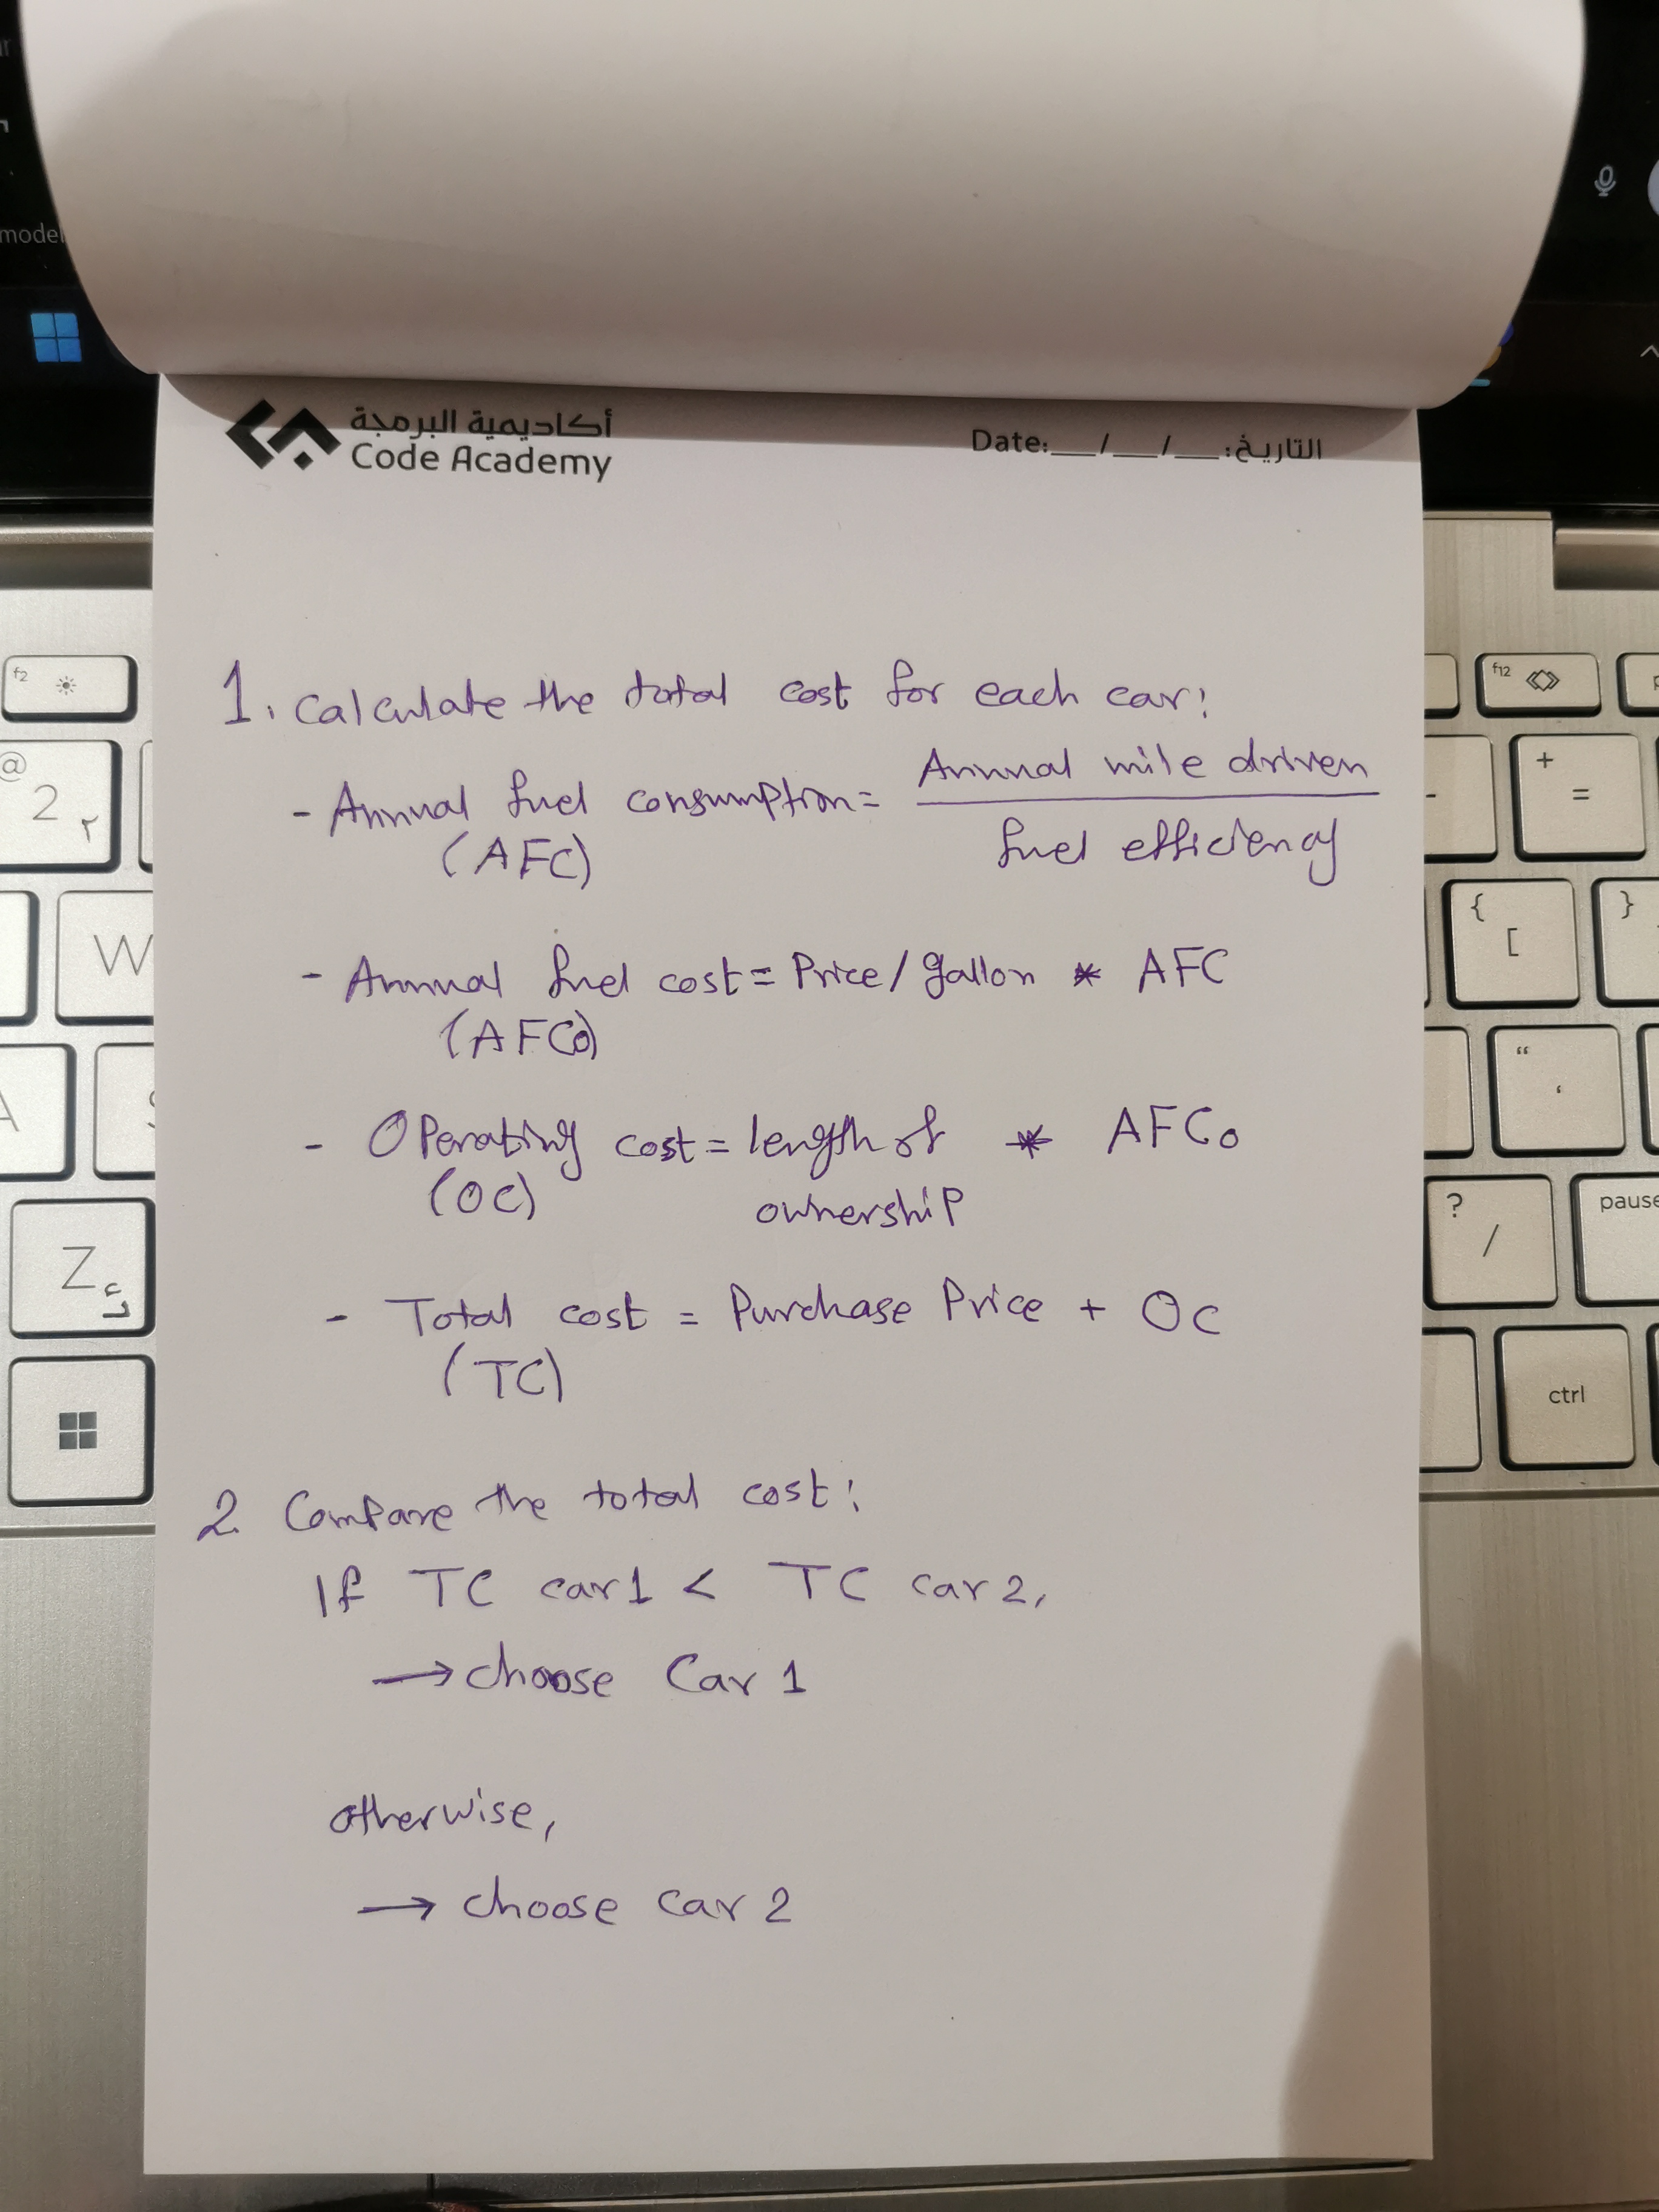 model
أكاديمية البرمجة
Code Academy
Date:__/__/__:التاريخ
1. Calculate the total cost for each car:
- Annual fuel consumption = Annual mile driven / fuel efficiency
(AFC)
- Annual fuel cost = Price / gallon * AFC
(AFCo)
- Operating cost = length of ownership * AFCo
(OC)
- Total cost = Purchase Price + OC
(TC)
2. Compare the total cost:
If TC car1 < TC car 2,
→ choose Car 1
otherwise,
→ choose car 2
f2
@
2 ٢
W
A
S
Z
ئ
f12
+
=
-
{
[
}
“
‘
?
/
pause
ctrl